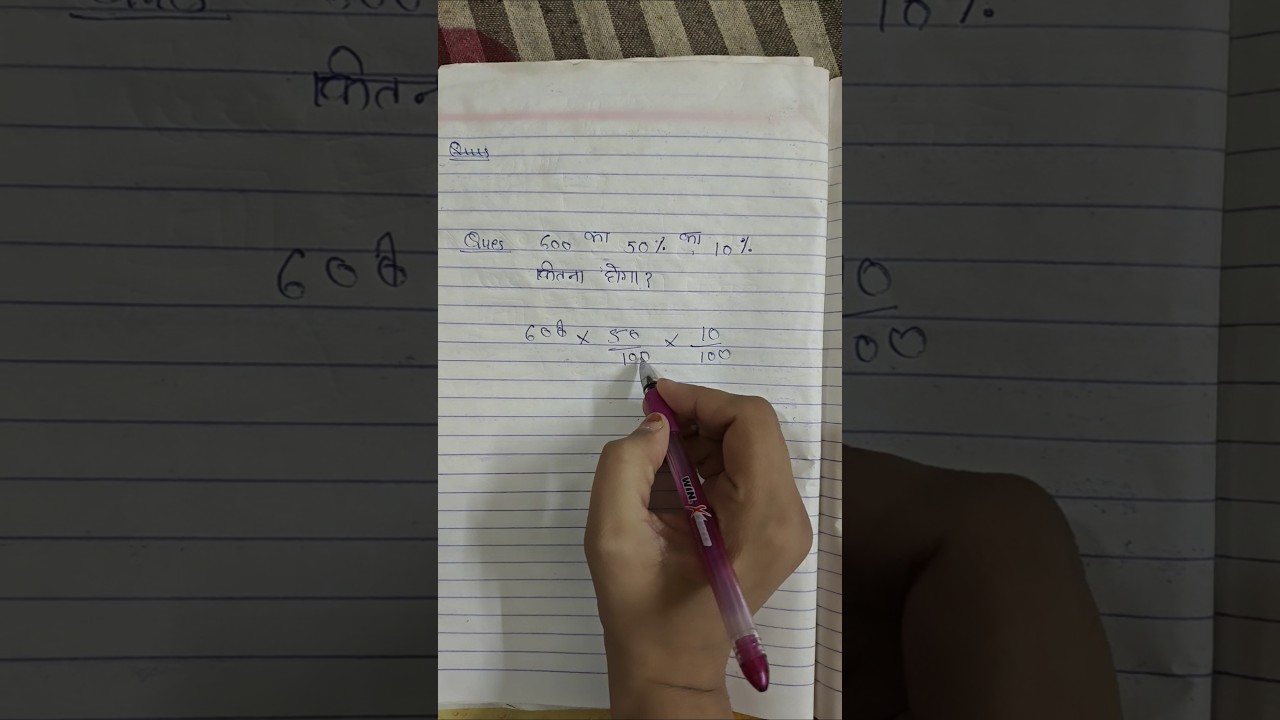 Ques
Ques 600 का 50% का 10%
कितना होगा?
600 × 50/100 × 10/100
WIN X